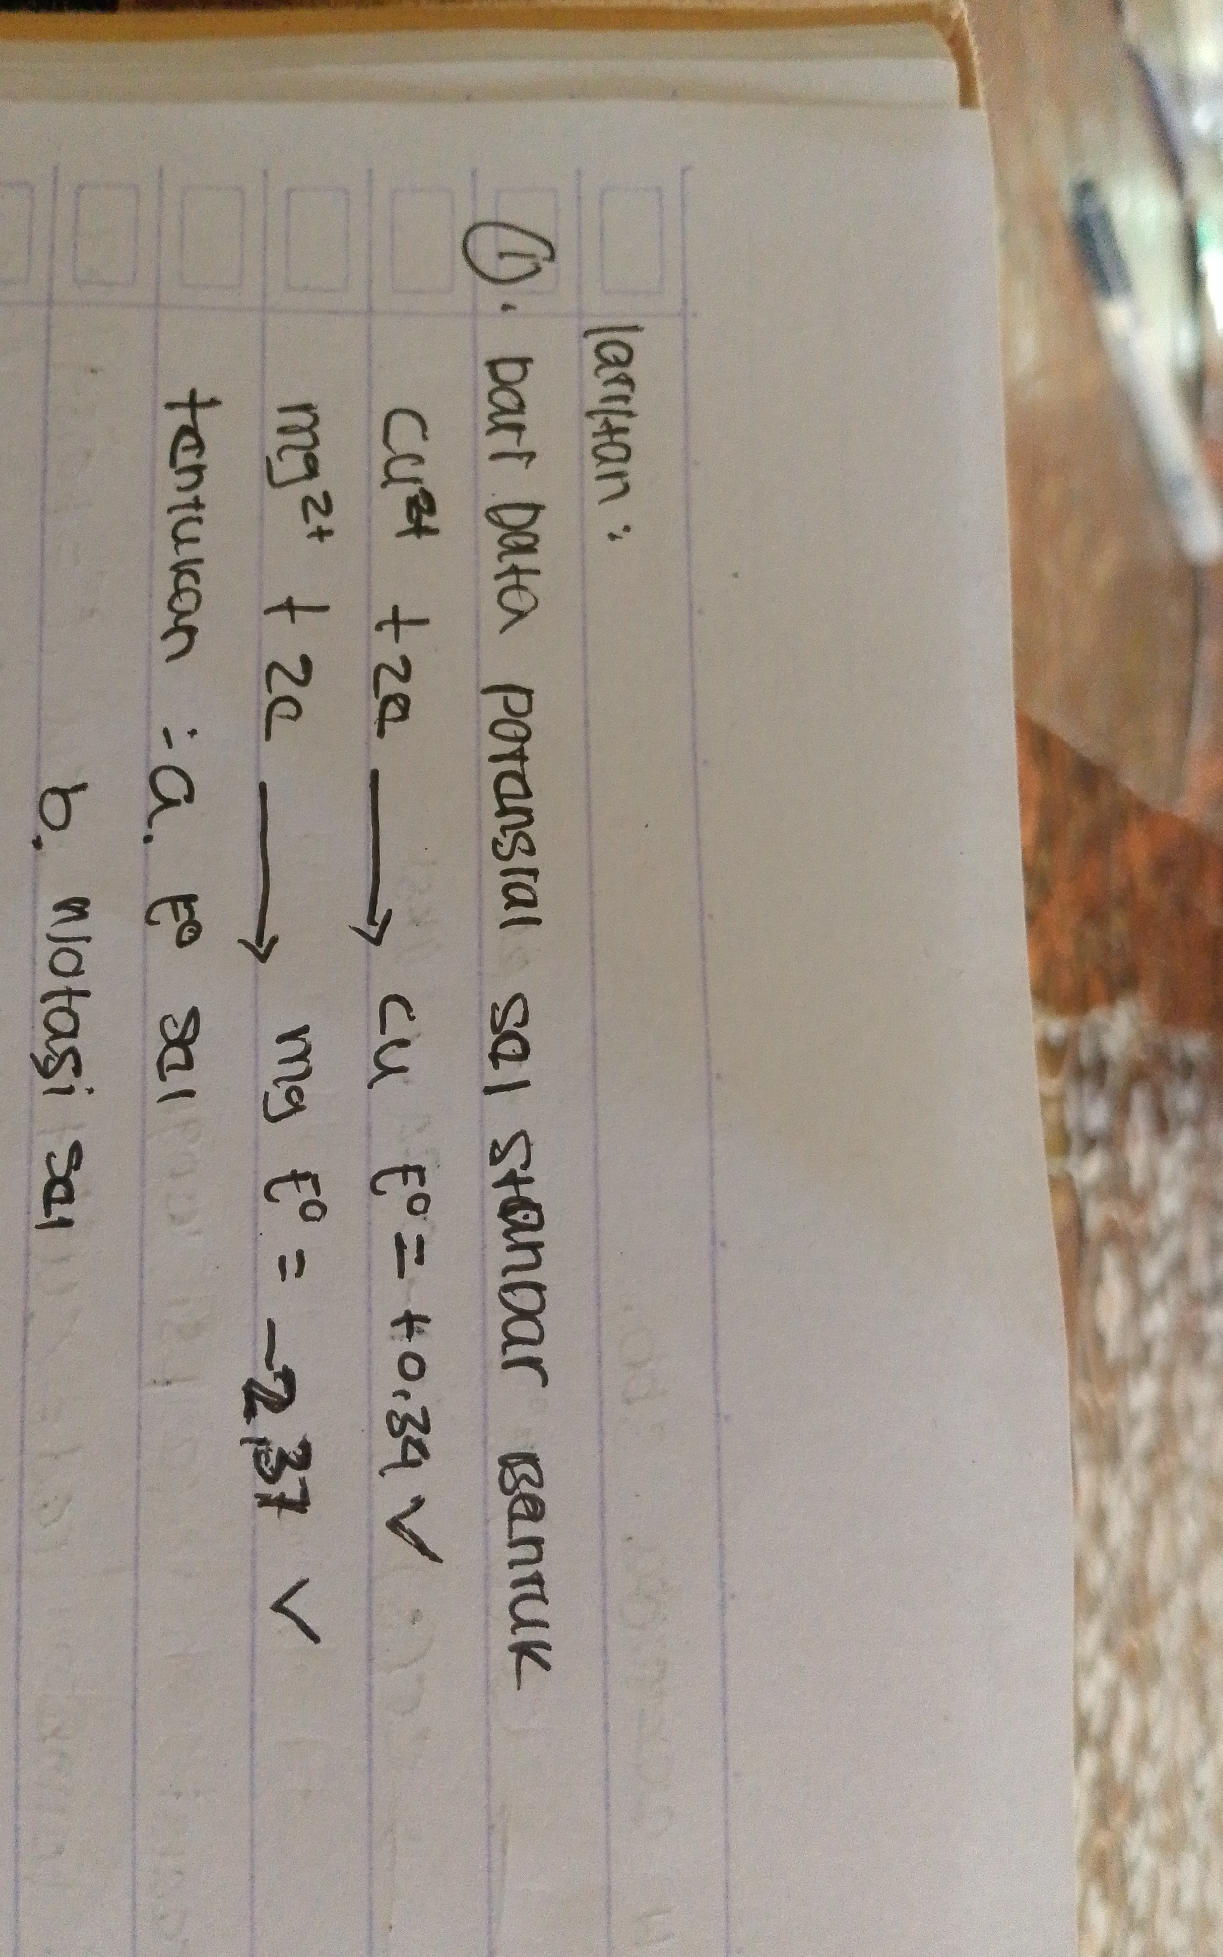 latihan :
①. Dari Data potensial sel standar Bentuk
Cu²⁺ + 2e ⟶ Cu E° = +0,34 V
mg²⁺ + 2e ⟶ mg E° = -2,37 V
tentukan : a. E° sel
b. Notasi sel